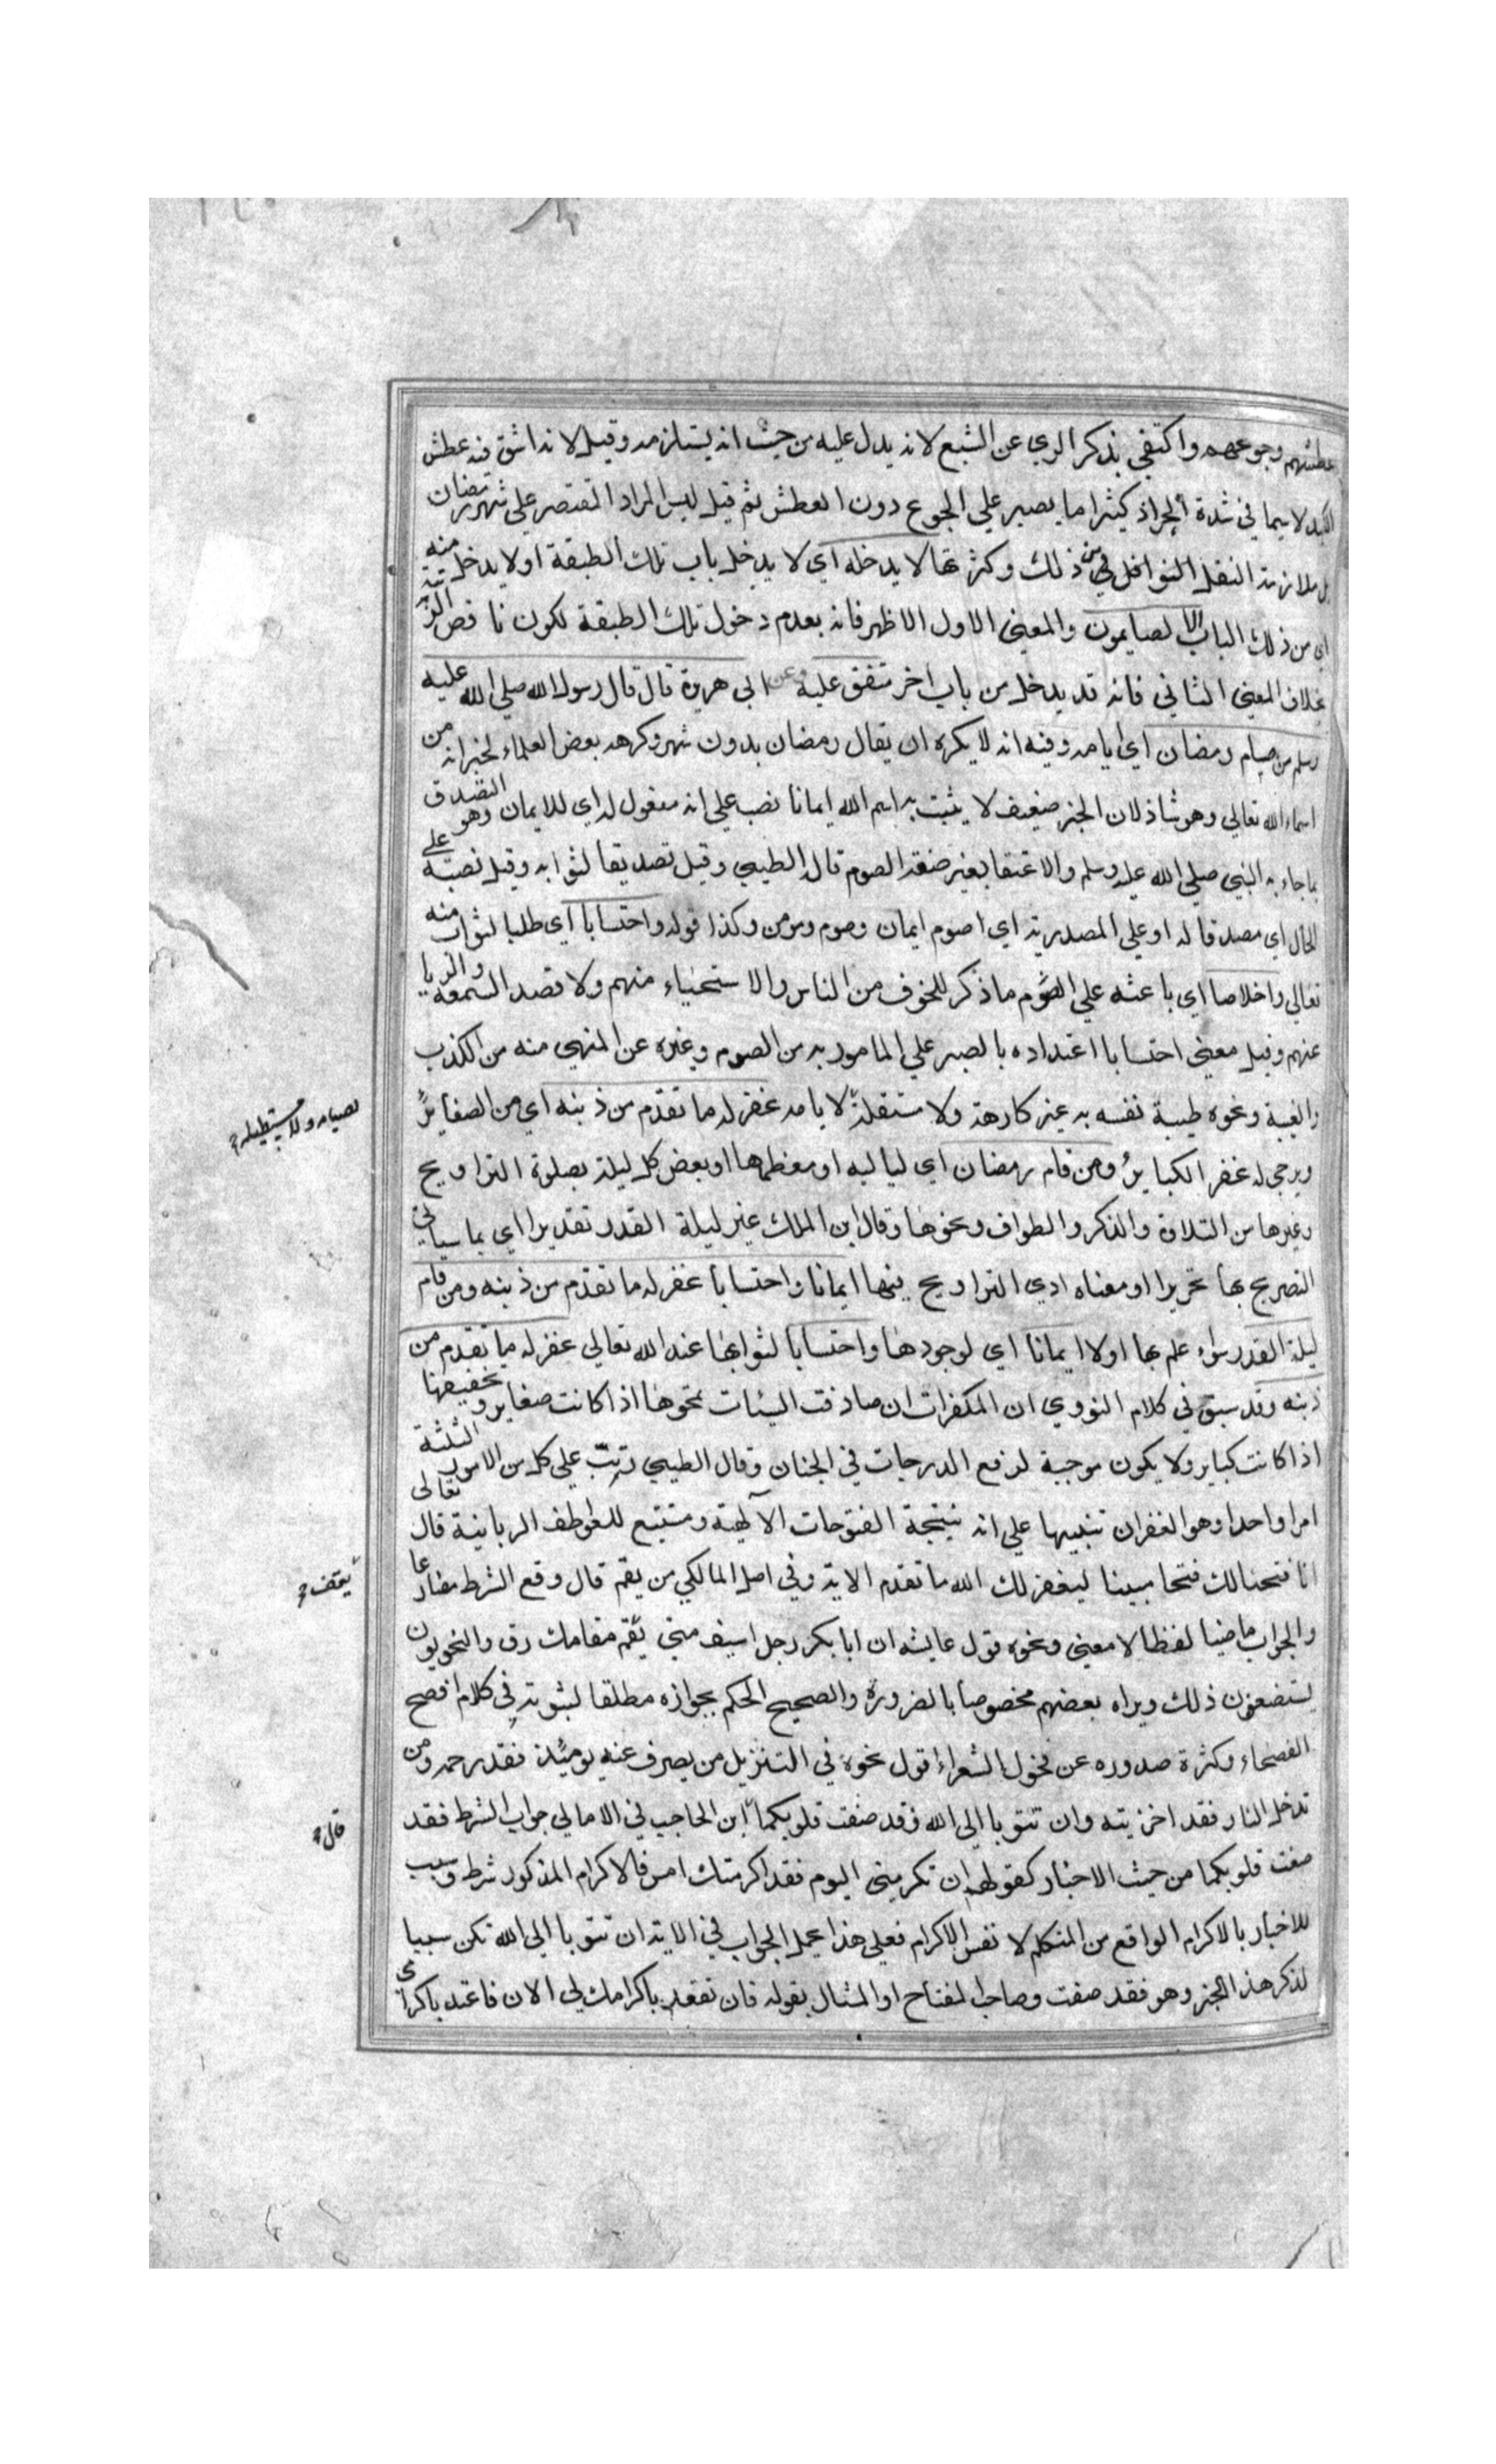 عطشهم وجوعهم واكتفي بذكر الري عن الشبع لانه يدل عليه من حيث انه يستلزمه وقيل لانه اشق فنه عطش
الكبد لا سيما في شدة الحر اذ كثيرا ما يصبر علي الجوع دون العطش ثم قيل ليس المراد المقتصر علي شهر رمضان
بل ملازمة النفل النوافل في من ذلك وكثرتها لا يدخله اي لا يدخل باب تلك الطبقة او لا يدخل منه
اي من ذلك الباب الا الصايمون والمعني الاول الاظهر فانه بعدم دخول تلك الطبقة لكون ناقص المرتبة
بخلاف المعني الثاني فانه قد يدخل من باب اخر متفق عليه وعن ابي هريرة قال قال رسول الله صلي الله عليه
وسلم من صام رمضان اي ايامه وفيه انه لا يكره ان يقال رمضان بدون شهر وكرهه بعض العلماء لخبر انه من
اسماء الله تعالي وهو شاذ لان الخبر ضعيف لا يثبت به اسم الله ايمانا نصب علي انه مفعول له اي للايمان وهو التصديق
بما جاء به النبي صلي الله عليه وسلم والاعتقاد بفرضية الصوم قال الطيبي وقيل تصديقا لثوابه وقيل نصبه علي
الحال اي مصدقا له او علي المصدرية اي اصوم ايمان وصوم مومن وكذا قوله واحتسابا اي طلبا لثواب منه
تعالي واخلاصا اي باعثه علي الصوم ما ذكر للخوف من الناس والاستحياء منهم ولا قصد السمعة والريا
عنهم وقيل معني احتسابا اعتداده بالصبر علي المامور به من الصوم وغيره عن المنهي منه من الكذب
والغيبة ونحوه طيبة نفسه به غير كارهة ولا مستقلة لايامه غفر له ما تقدم من ذنبه اي من الصغاير
ويرجي له غفر الكباير ومن قام رمضان اي لياليه او معظمها او بعض كل ليلة بصلوة التراويح
وغيرها من التلاوة والذكر والطواف ونحوها وقال ابن الملك غير ليلة القدر تقديرا اي بما سياتي
التصريح بها تحريرا او معناه ادي التراويح فيها ايمانا واحتسابا غفر له ما تقدم من ذنبه ومن قام
ليلة القدر سواء علم بها اولا ايمانا اي لوجودها واحتسابا لثوابها عند الله تعالي غفر له ما تقدم من
ذنبه وقد سبق في كلام النووي ان المكفرات ان صادفت السيئات تمحوها اذا كانت صغاير وتخفيفها
اذا كانت كباير ولا يكون موجبة لرفع الدرجات في الجنان وقال الطيبي رتب علي كل من الامور الثلثة
امرا واحدا وهو الغفران تنبيها علي انه نتيجة الفتوحات الآلهية ومستتبع للعواطف الربانية قال تعالى
انا فتحنا لك فتحا مبينا ليغفر لك الله ما تقدم الاية وفي اصل المالكي من يقم قال وقع الشرط مضارعا
والجواب ماضيا لفظا لا معني ونحوه قول عايشه ان ابا بكر رجل اسيف متي يقم مقامك رق والنحويون
يستضعفون ذلك ويراه بعضهم مخصوصا بالضرورة والصحيح الحكم بجوازه مطلقا لثبوته في كلام افصح
الفصحاء وكثرة صدوره عن فحول الشعراء اقول نحوه في التنزيل من يصرف عنه يومئذ فقد رحمه ومن
تدخل النار فقد اخزيته وان تتوبا الى الله فقد صغت قلوبكما ابن الحاجب في الامالي جواب الشرط فقد
صغت قلوبكما من حيث الاخبار كقولهم ان تكرمني اليوم فقد اكرمتك امس فالاكرام المذكور شرط وسبب
للاخبار بالاكرام الواقع من المتكلم لا نفس الاكرام فعلي هذا يحمل الجواب في الاية ان تتوبا الي الله تكن سببا
لذكر هذا الخبر وهو فقد صغت وصاحب المفتاح اول المثال بقوله فان تعتد باكرامك لي الان فاعتد باكرامي
لصيامه ولا مستطيلة
يقتضي
قال